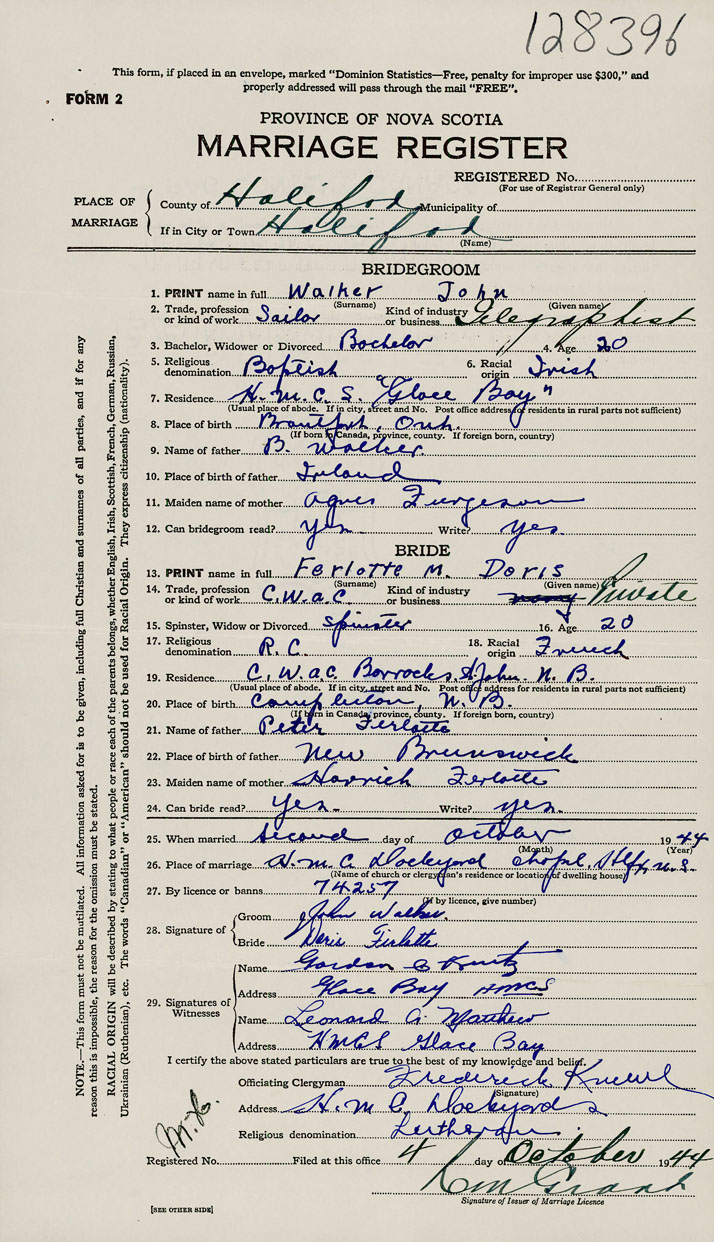 128396
This form, if placed in an envelope, marked “Dominion Statistics—Free, penalty for improper use $300,” and
properly addressed will pass through the mail “FREE”.
FORM 2
PROVINCE OF NOVA SCOTIA
MARRIAGE REGISTER
REGISTERED No.
(For use of Registrar General only)
PLACE OF MARRIAGE
County of Halifax Municipality of
If in City or Town Halifax
(Name)
BRIDEGROOM
1. PRINT name in full Walker John
(Surname) (Given name)
2. Trade, profession or kind of work Sailor Kind of industry or business Telegraphist
3. Bachelor, Widower or Divorced Bachelor 4. Age 20
5. Religious denomination Baptist 6. Racial origin Irish
7. Residence H.M.C.S. "Glace Bay"
(Usual place of abode. If in city, street and No. Post office address for residents in rural parts not sufficient)
8. Place of birth Brantford, Ont.
(If born in Canada, province, county. If foreign born, country)
9. Name of father B. Walker
10. Place of birth of father Ireland
11. Maiden name of mother Agnes Furgeson
12. Can bridegroom read? yes Write? yes
BRIDE
13. PRINT name in full Ferlotte M. Doris
(Surname) (Given name)
14. Trade, profession or kind of work C.W.a.C. Kind of industry or business Private
15. Spinster, Widow or Divorced spinster 16. Age 20
17. Religious denomination R.C. 18. Racial origin French
19. Residence C.W.a.C Barrocks, St John. N.B.
(Usual place of abode. If in city, street and No. Post office address for residents in rural parts not sufficient)
20. Place of birth N.B.
(If born in Canada, province, county. If foreign born, country)
21. Name of father Peter Ferlotte
22. Place of birth of father New Brunswick
23. Maiden name of mother Ferlotte
24. Can bride read? yes Write? yes.
25. When married second day of October 1944
(Month) (Year)
26. Place of marriage H.M.C. Dockyard Chapel, Hlfx, N.S.
(Name of church or clergyman's residence or location of dwelling house)
27. By licence or banns 74257
(If by licence, give number)
28. Signature of
Groom John Walker
Bride Doris Ferlotte
29. Signatures of Witnesses
Name Gordon
Address Glace Bay HMCS
Name Leonard G. Matthew
Address HMCS Glace Bay
I certify the above stated particulars are true to the best of my knowledge and belief.
Officiating Clergyman Frederick
(Signature)
Address H.M.C. Dockyards
Religious denomination Lutheran
Registered No. Filed at this office 4 day of October 1944
Signature of Issuer of Marriage Licence
[SEE OTHER SIDE]
NOTE.—This form must not be mutilated. All information asked for is to be given, including full Christian and surnames of all parties, and if for any
reason this is impossible, the reason for the omission must be stated.
RACIAL ORIGIN will be described by stating to what people or race each of the parents belongs, whether English, Irish, Scottish, French, German, Russian,
Ukrainian (Ruthenian), etc. The words “Canadian” or “American” should not be used for Racial Origin. They express citizenship (nationality).